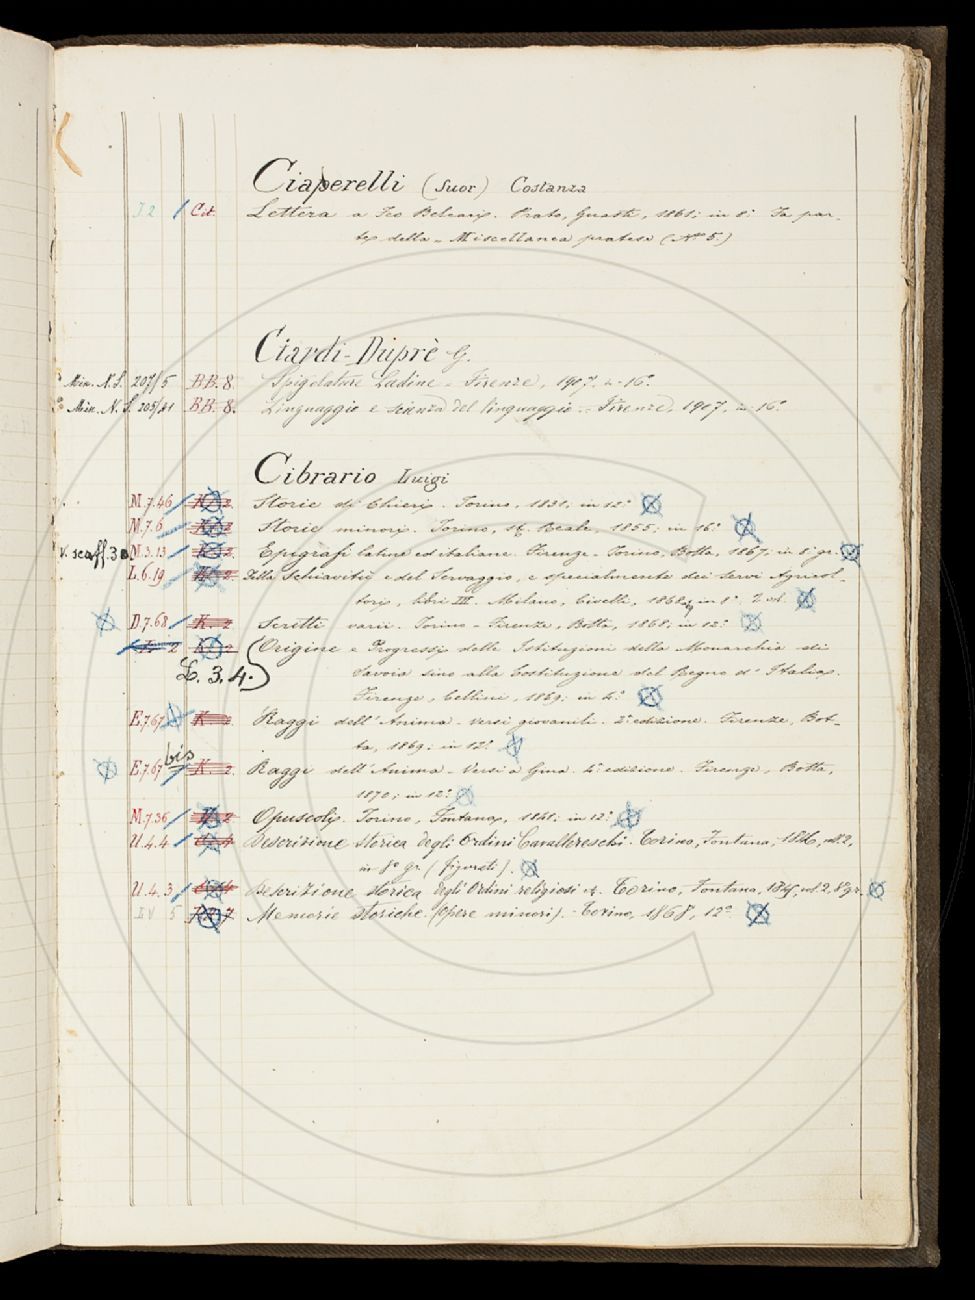 Ciaperelli (Suor) Costanza
I 2 Cit. Lettera a Feo Belcari. Prato, Guasti, 1861; in 8° Fa par-
te della "Miscellanea pratese (N° 5.)
Ciardi-Duprè G.
Min. N.S. 207/5 BB. 8. Spigolature Ladine - Firenze, 1907, in-16°.
Min. N.S. 205/41 BB. 8. Linguaggio e scienza del linguaggio - Firenze, 1907, in 16°
Cibrario Luigi
M.7.46 K. 2. Storie di Chieri. Torino, 1831; in 12°
M.7.6 K. 2. Storie minori. Torino, St. Reale, 1855; in 16°
V. scaff. 3 M.3.13 K. 2. Epigrafi latine ed italiane. Firenze-Torino, Botta, 1867; in 8° gr.
L.6.19 K. 2. Della Schiavitù e del Servaggio, e specialmente dei servi Agricol-
tori, libri III. Milano, Civelli, 1868, in 8° 2 vol.
D.7.68 K. 2 Scritti varii. Torino-Firenze, Botta, 1868; in 12°
2 K. 2 Origine e Progressi delle Istituzioni della Monarchia di
L. 3.4. Savoia sino alla Costituzione del Regno d'Italia.
Firenze, Cellini, 1869; in 4°
E.7.67 K. 2. Raggi dell'Anima. Versi giovanili. 2° edizione. Firenze, Bot-
ta, 1869; in 12°
E.7.67 bis K. 2. Raggi dell'Anima. Versi a Gina. 4° edizione. Firenze, Botta,
1870; in 12°
M.7.36 K. 2 Opuscoli. Torino, Fontana, 1841; in 12°
U.4.4 Descrizione storica degli Ordini Cavallereschi. Torino, Fontana, 1846, vol. 2,
in 8° gr. (figurati).
U.4.3 Descrizione storica degli Ordini religiosi. Torino, Fontana, 1845, vol. 2, 8° gr.
IV 5 Memorie storiche. (Opere minori). - Torino, 1868, 12°